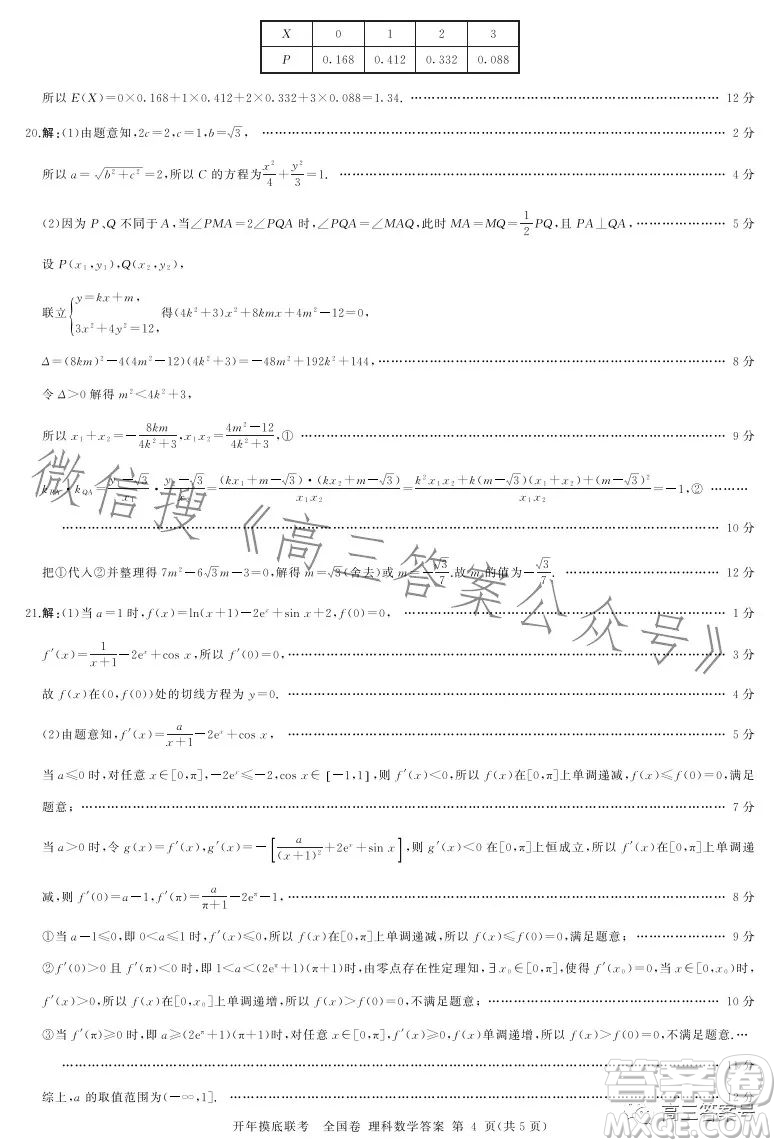 X 0 1 2 3
P 0.168 0.412 0.332 0.088
所以 E(X)=0×0.168+1×0.412+2×0.332+3×0.088=1.34. …… 12 分
20.解:(1)由题意知,2c=2,c=1,b=√3, …… 2 分
所以 a=√(b²+c²)=2,所以 C 的方程为x²/4+y²/3=1. …… 4 分
(2)因为 P、Q 不同于 A,当∠PMA=2∠PQA 时,∠PQA=∠MAQ,此时 MA=MQ=1/2PQ,且 PA⊥QA, …… 5 分
设 P(x₁,y₁),Q(x₂,y₂),
联立{y=kx+m, 3x²+4y²=12, 得(4k²+3)x²+8kmx+4m²-12=0,
Δ=(8km)²-4(4m²-12)(4k²+3)=-48m²+192k²+144, …… 8 分
令 Δ>0 解得 m²<4k²+3,
所以 x₁+x₂=-8km/(4k²+3),x₁x₂=(4m²-12)/(4k²+3),① …… 9 分
k_PA·k_QA=(y₁-√3)/x₁·(y₂-√3)/x₂=(kx₁+m-√3)·(kx₂+m-√3)/(x₁x₂)=(k²x₁x₂+k(m-√3)(x₁+x₂)+(m-√3)²)/(x₁x₂)=-1,② ……
…… 10 分
把①代入②并整理得 7m²-6√3m-3=0,解得 m=√3(舍去)或 m=-√3/7.故 m 的值为-√3/7. …… 12 分
21.解:(1)当 a=1 时,f(x)=ln(x+1)-2eˣ+sin x+2,f(0)=0, …… 1 分
f′(x)=1/(x+1)-2eˣ+cos x,所以 f′(0)=0, …… 3 分
故 f(x)在(0,f(0))处的切线方程为 y=0. …… 4 分
(2)由题意知,f′(x)=a/(x+1)-2eˣ+cos x, …… 5 分
当 a≤0 时,对任意 x∈[0,π],-2eˣ≤-2,cos x∈[-1,1],则 f′(x)<0,所以 f(x)在[0,π]上单调递减,f(x)≤f(0)=0,满足
题意; …… 7 分
当 a>0 时,令 g(x)=f′(x),g′(x)=-[a/(x+1)²+2eˣ+sin x],则 g′(x)<0 在[0,π]上恒成立,所以 f′(x)在[0,π]上单调递
减,则 f′(0)=a-1,f′(π)=a/(π+1)-2e^π-1, …… 8 分
①当 a-1≤0,即 0<a≤1 时,f′(x)≤0,所以 f(x)在[0,π]上单调递减,所以 f(x)≤f(0)=0,满足题意; …… 9 分
②f′(0)>0 且 f′(π)<0 时,即 1<a<(2e^π+1)(π+1)时,由零点存在性定理知,∃x₀∈[0,π],使得 f′(x₀)=0,当 x∈[0,x₀)时,
f′(x)>0,所以 f(x)在[0,x₀]上单调递增,所以 f(x)>f(0)=0,不满足题意; …… 10 分
③当 f′(π)≥0 时,即 a≥(2e^π+1)(π+1)时,对任意 x∈[0,π],f′(x)≥0,f(x)单调递增,所以 f(x)>f(0)=0,不满足题意. …
…… 11 分
综上,a 的取值范围为(-∞,1]. …… 12 分
开年摸底联考 全国卷 理科数学答案 第 4 页(共 5 页)
微信搜《高三答案公众号》
答案圈
MXQE.COM
高三答案号